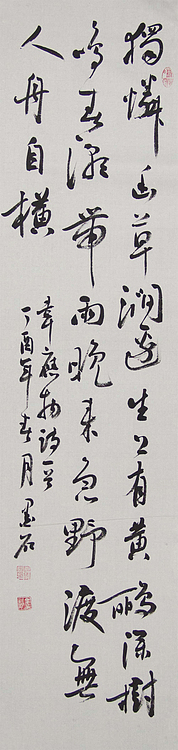 獨憐幽草澗邊生上有黃鸝深樹
鳴春潮帶雨晚來急野渡無
人舟自橫
韋應物詩一首
丁酉年春月墨石